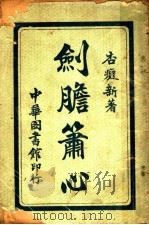 杏癡新著
劍膽簫心
中華圖書館印行